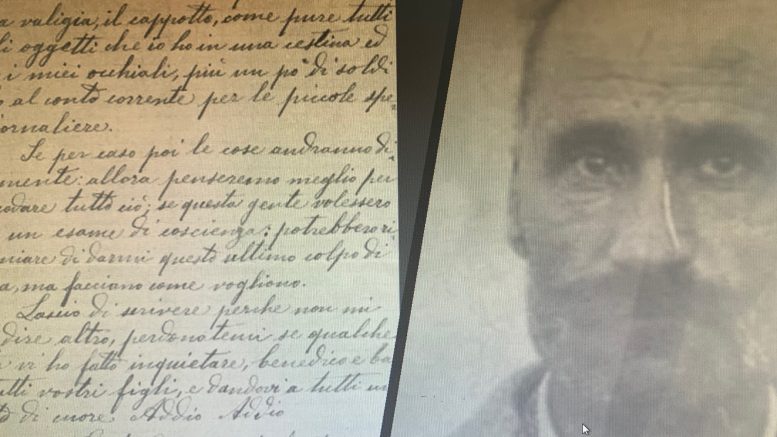 a valigia, il cappotto, come pure tutti
li oggetti che io ho in una cestina ed
i miei occhiali, più un po' di soldi
al conto corrente per le piccole spe-
iornaliere.
Se per caso poi le cose andranno di-
mente: allora penseremo meglio per
odare tutto ciò; se questa gente volessero
un esame di coscienza; potrebbero ri-
niare di darmi questo ultimo colpo di
a, ma facciano come vogliono.
Lascio di scrivere perche non mi
dire altro, perdonatemi se qualche
vi ho fatto inquietare, benedico e ba
utti vostri figli, e dandovi a tutti un
di cuore. Addio Addio